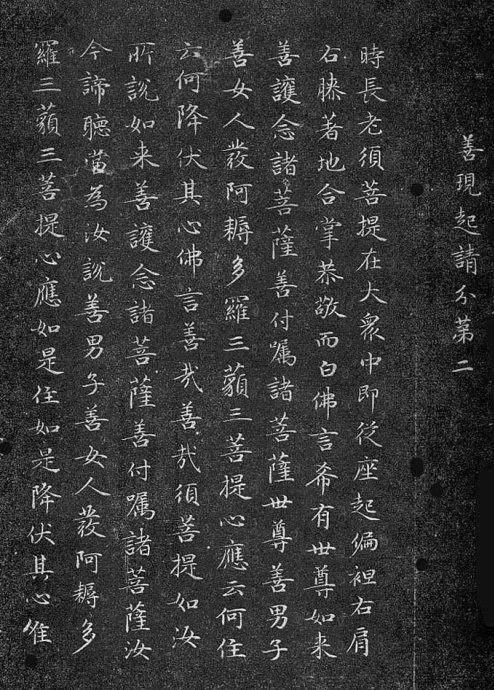 善現起請分苐二
時長老須菩提在大衆中即從座起偏袒右肩
右膝著地合掌恭敬而白佛言希有世尊如来
善護念諸菩薩善付嘱諸菩薩世尊善男子
善女人發阿耨多羅三藐三菩提心應云何住
云何降伏其心佛言善哉善哉須菩提如汝
所說如来善護念諸菩薩善付嘱諸菩薩汝
今諦聽當為汝說善男子善女人發阿耨多
羅三藐三菩提心應如是住如是降伏其心唯